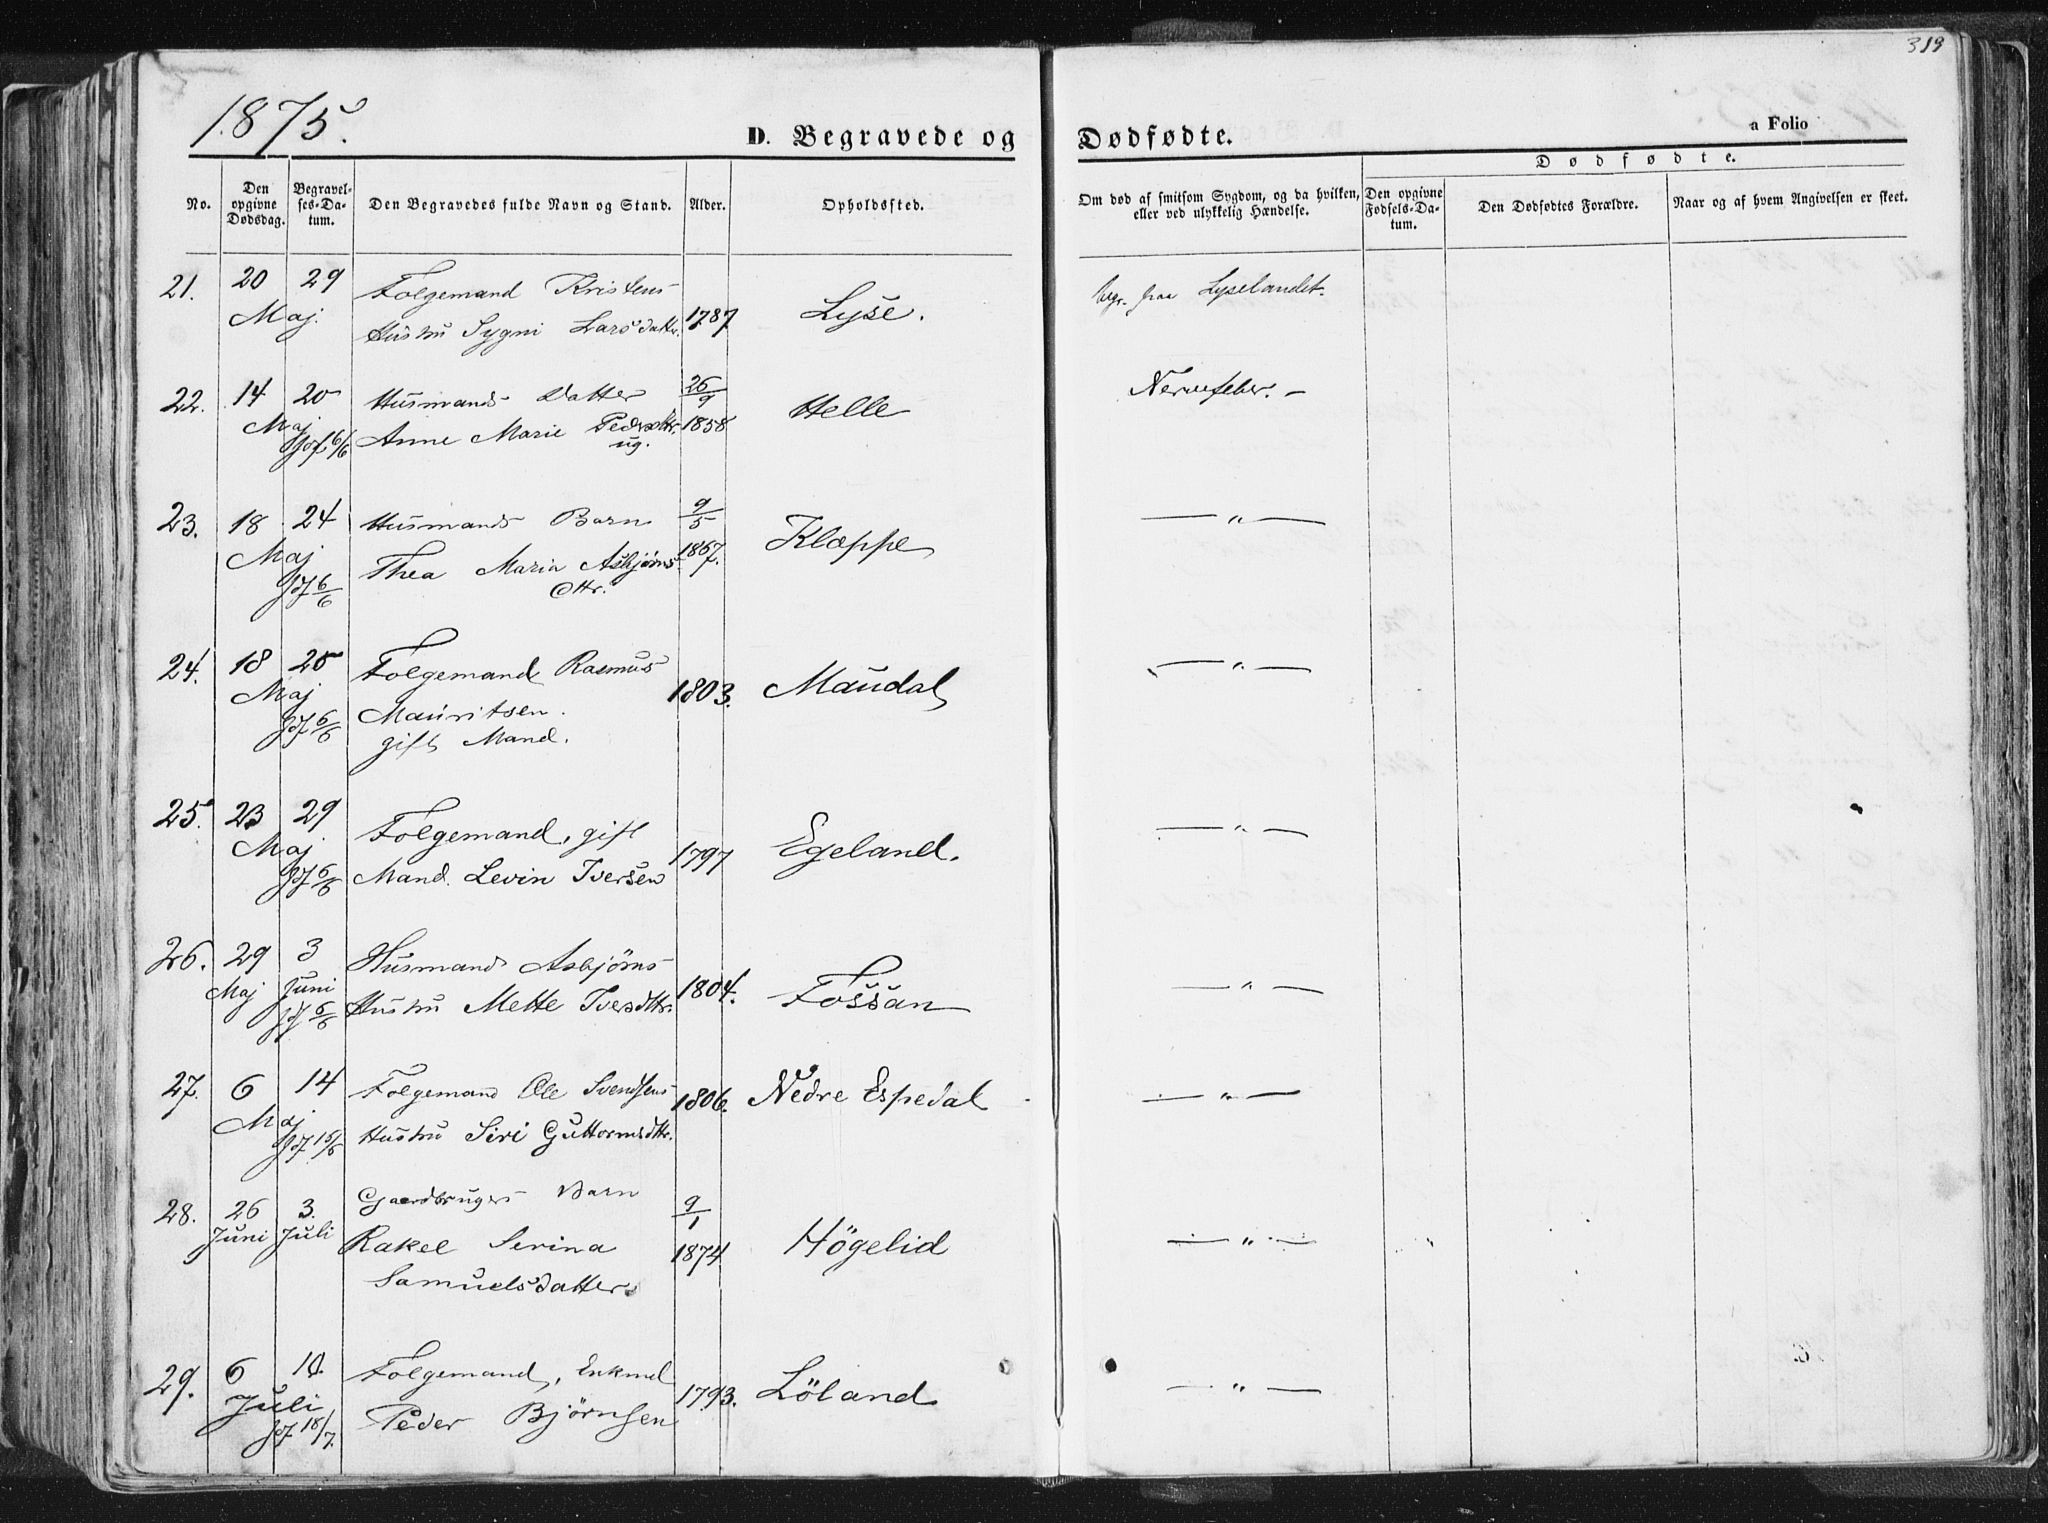 319
1875.
D. Begravede og Dødfødte.
a Folio
No.
Den opgivne Dødsdag.
Begravelses-Datum.
Den Begravedes fulde Navn og Stand.
Alder.
Opholdssted.
Om død af smitsom Sygdom, og da hvilken, eller ved ulykkelig Hændelse.
Dødfødte.
Den opgivne Fødsels-Datum.
Den Dødfødtes Forældre.
Naar og af hvem Angivelsen er skeet.
21. 20 29 Folgemand Kristens
Maj. Hustru Sygni Larsdatter. 1787 Lyse. begr. paa Lyselandet.
22. 14 20 Husmands Datter 26/9 Helle Nervefeber. –
Maj Anne Marie Pedersdtr. 1858
Jdf. 6/6 ug.
23. 18 24 Husmands Barn 9/5 Kloppe — " —
Maj Thea Maria Asbjørns- 1867.
Jdf 6/6 dttr.
24. 18 25 Folgemand Rasmus 1803. Maudal — " —
Maj Mauritsen.
Jdf 6/6 gift Mand.
25. 23 29 Folgemand, gift Egeland. — " —
Maj Mand. Levin Iversen 1797
Jdf 6/6
26. 29 3 Husmand Asbjörns 1804. Fossan — " —
Maj Juni Hustru Mette Iversdttr.
Jdf 6/6
27. 6 14 Folgemand Ole Svendsens 1806. Nedre Espedal — " —
Maj Hustru Siri Guttormsdttr.
Jdf. 15/6
28. 26 3. Gaardbrugers Barn 9/1 Högelid — " —
Juni Juli Rakel Serina 1874
Samuelsdatter.
29. 6 10. Folgemand, Enkmd 1793. Löland — " —
Juli Peder Björnsen
Jdf 18/7.